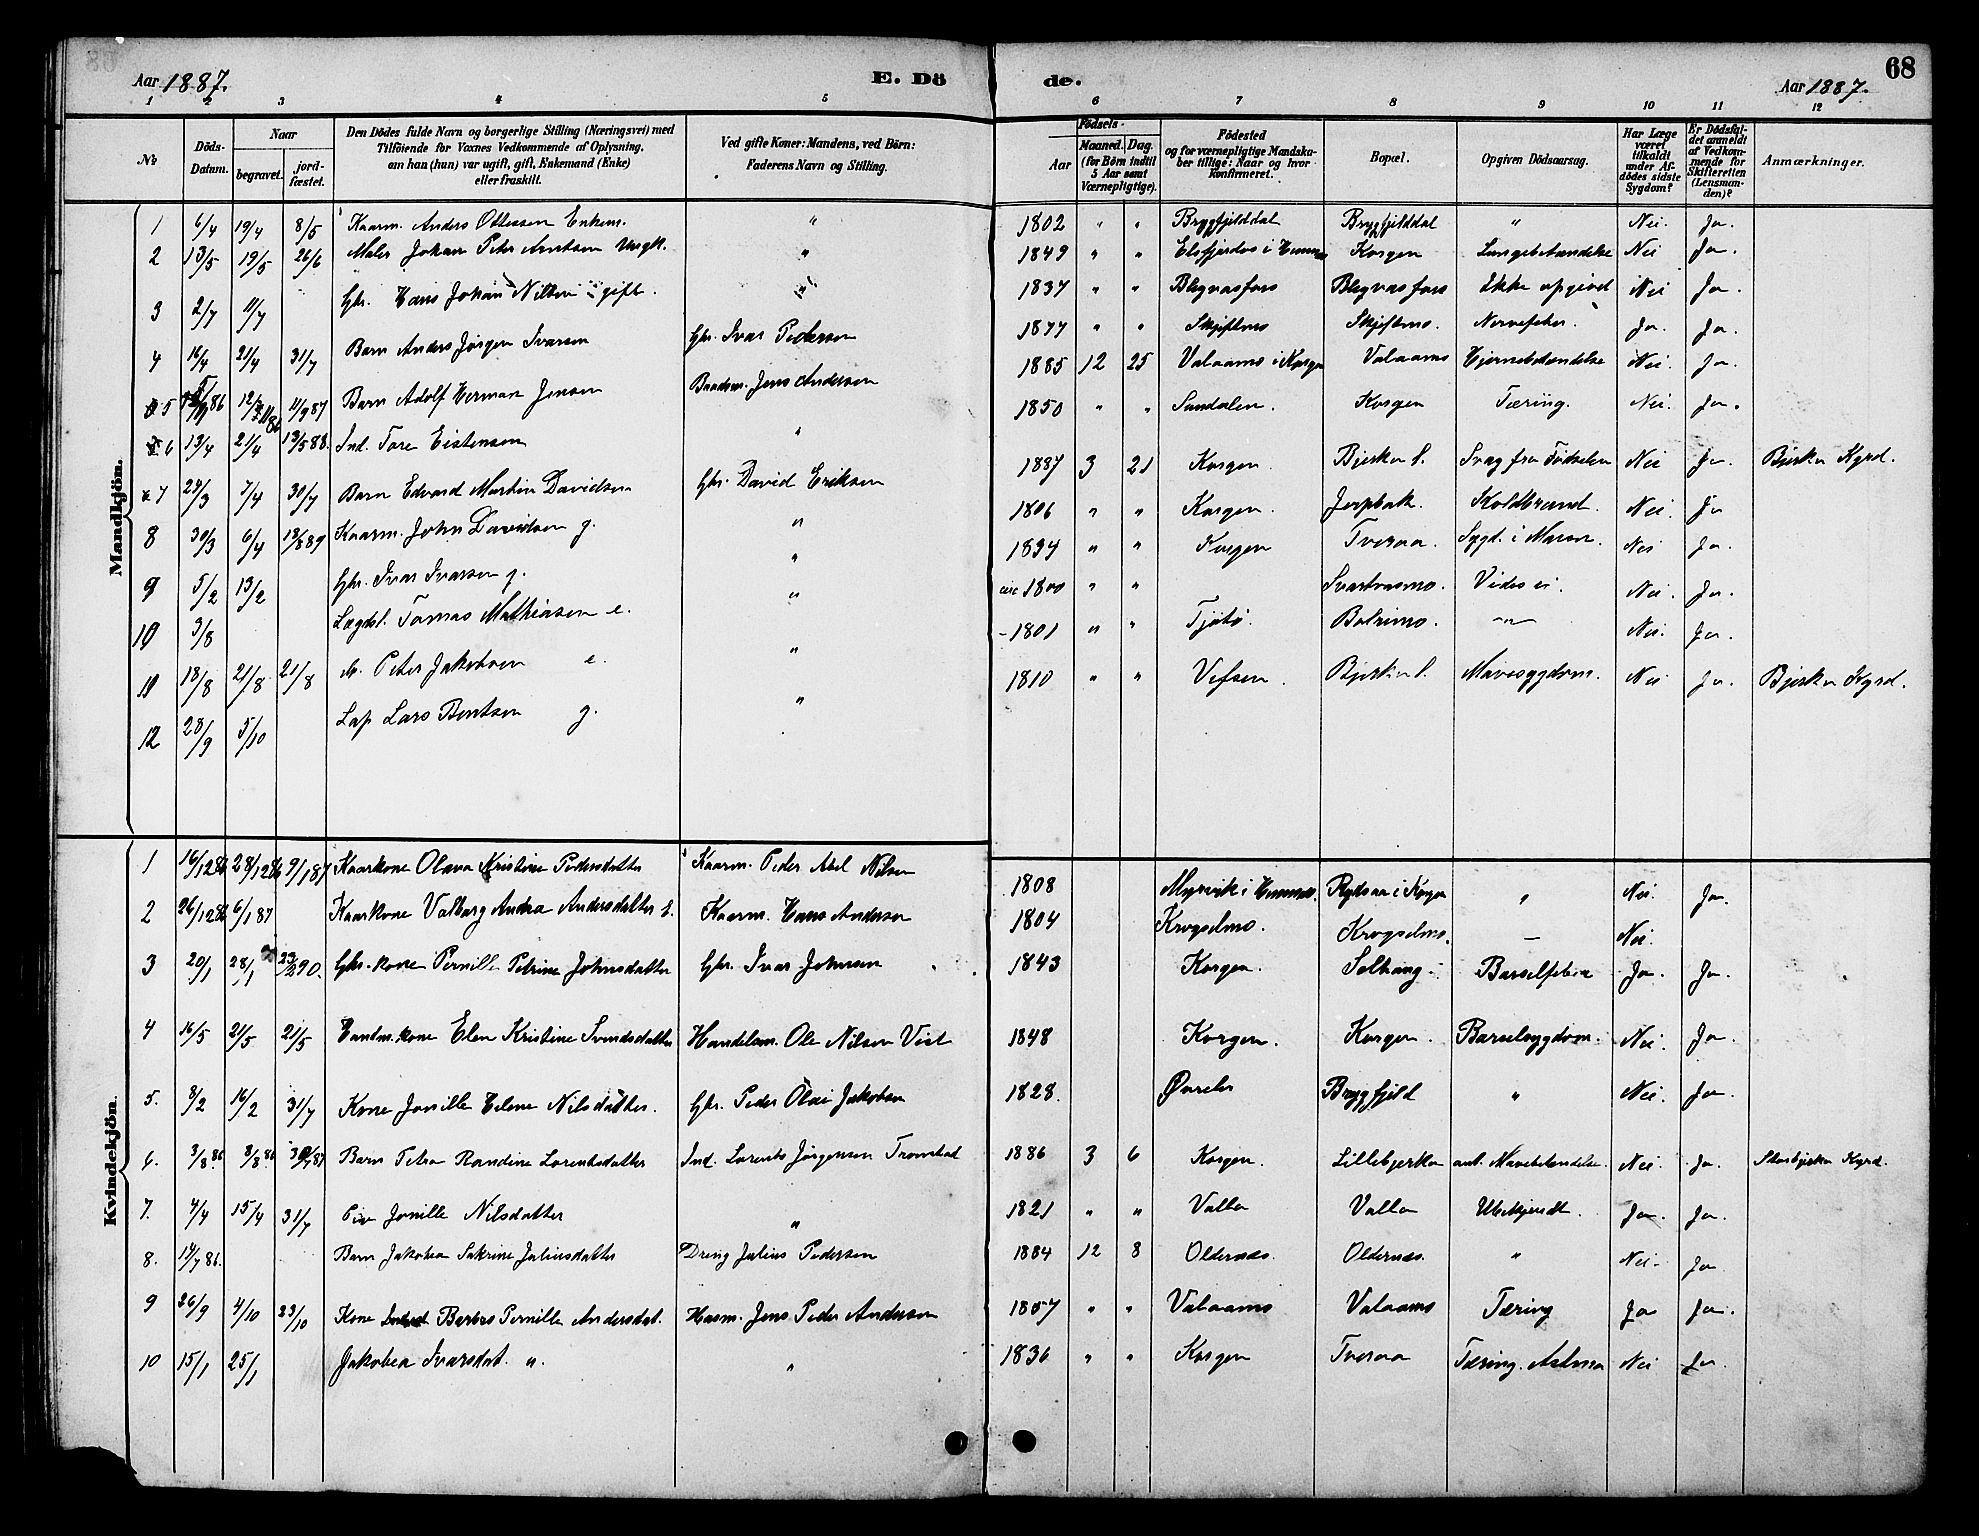 Aar 1887. E. Dö de. Aar 1887. 68
1 2 3 4 5 6 7 8 9 10 11 12
No. Döds-Datum. Naar begravet. jord-fæstet. Den Dödes fulde Navn og borgerlige Stilling (Næringsvei) med Tilföiende for Voxnes Vedkommende af Oplysning, om han (hun) var ugift, gift, Enkemand (Enke) eller fraskilt. Ved gifte Koner: Mandens, ved Börn: Faderens Navn og Stilling. Födsels- Aar Maaned. Dag. (for Börn indtil 5 Aar samt Værnepligtige). Födested og for værnepligtige Mandskaber tillige: Naar og hvor Konfirmeret. Bopæl. Opgiven Dödsaarsag. Har Læge været tilkaldt under Afdödes sidste Sygdom? Er Dödsfaldet anmeldt af Vedkommende for Skifteretten (Lensmanden)? Anmærkninger.
Mandkjön.
1 6/4 19/4 8/5 Kaarm. Anders Ottessen Enkem. " 1802 " " Bryggfjelddal Bryggfjelddal " Nei. Ja.
2 13/5 19/5 26/6 Maler Johan Peter Arntsen Ungk. " 1849 " " Elsfjorden i Hemnes Korgen Lungebetændelse Nei Ja.
3 2/7 11/7 Gbr. Hans Johan Nilsen gift. " 1837 " " Blegvasfors Blegvasfors Ikke opgivet Nei Ja.
4 16/4 21/4 31/7 Barn Anders Jørgen Ivarsen Gbr. Ivar Pedersen 1877 " " Skjeftmo Skjeftmo. Nervefeber. Ja. Ja.
5 11/9 87 Barn Adolf Herman Jensen Baadsm. Jens Andersen 1885 12 25 Valaamo i Korgen Valaamo Hjernebetændelse Nei. Ja.
6 13/4 21/4 13/5 88. Ind. Tore Eistensen " 1850 " " Sundalen. Korgen Tæring. Nei. Ja.
7 29/3 7/4 30/7 Barn Edvard Martin Davidsen Gbr. David Eriksen 1887 3 21 Korgen. Bjerka l. Svag fra Fødselen Nei Ja. Bjerka Kgrd.
8 30/3 6/4 13/8 89 Kaarm. John Davidsen g. " 1806 " " Korgen. Jerpbak. Koldbrand. Nei. Ja
9 5/2 13/2 Gbr. Ivar Ivarsen g. " 1834 " " Korgen Tveraa. Sygd. i Maven. Nei Ja.
10 3/8 Lægdsl. Tomas Mathiasen e. " circ 1800 " " Svartvasmo. Vides ei. Nei. Ja.
11 18/8 21/8 21/8 Peter Jakobsen e. " -1801 " " Tjøtø. Bolrimo. -"- Nei. Ja.
12 28/9 5/10 Lap Lars Bentsen g. " 1810 " " Vefsen. Bjerka l. Mavesygdom. Nei Ja. Bjerka Kgrd.
Kvindekjön.
1 16/12 86 28/12 86 9/1 87 Kaarkone Olava Kristine Pedersdatter Kaarm. Peder Abel Nilsen 1808 Myrvik i Hemnes. Rydsaa i Korgen " Nei. Ja.
2 26/12 86 6/1 87 Kaarkone Valborg Andrea Andersdatter E. Kaarm. Hans Andersen 1804 Krogselmo. Krogselmo. — Nei.
3 20/1 28/1 23/2 90. Gbr.-kone Pernille Petrine Johnsdatter Gbr. Ivar Johnsen 1843 Korgen. Solhaug Barselfeber Ja. Ja.
4 16/5 21/5 21/5 Handm. kone Elen Kristine Svendsdatter Handelsm. Ole Nilsen Vist 1848 Korgen. Korgen. Barselsygdom. Nei. Ja.
5. 8/2 16/2 31/7 Kone Jonille Helene Nilsdatter. Gbr. Peder Olai Jakobsen 1828. Øvreler Bryggfjeld " Nei. Ja.
6. 3/8 86 8/8 86 30/7 87 Barn Petra Randine Lorentsdatter Ind. Lorents Jørgensen Tronstad 1886 3 6 Korgen. Lillebjerka ant. Mavebetændelse. Nei. Ja. Storbjerka Kgrd.
7. 4/4 15/4 31/7 Pie Jonille Nilsdatter " 1821 " " Valla Valla Ubekjendt. Ja. Ja.
8. 14/7 86. Barn Jakobea Sakrine Juliusdatter Dreng Julius Pedersen 1884 12 8 Oldernæs. Oldernæs. " Nei. Ja
9 26/9 4/10 23/10 Kone Berbro Pernille Andersdat. Husm. Jens Peder Andersen 1857 " " Valaamo Valaamo Tæring Ja Ja.
10 15/1 25/1 Jakobea Ivarsdat. u. " 1836 " " Korgen Tveraa Tæring. Astma Nei Ja.